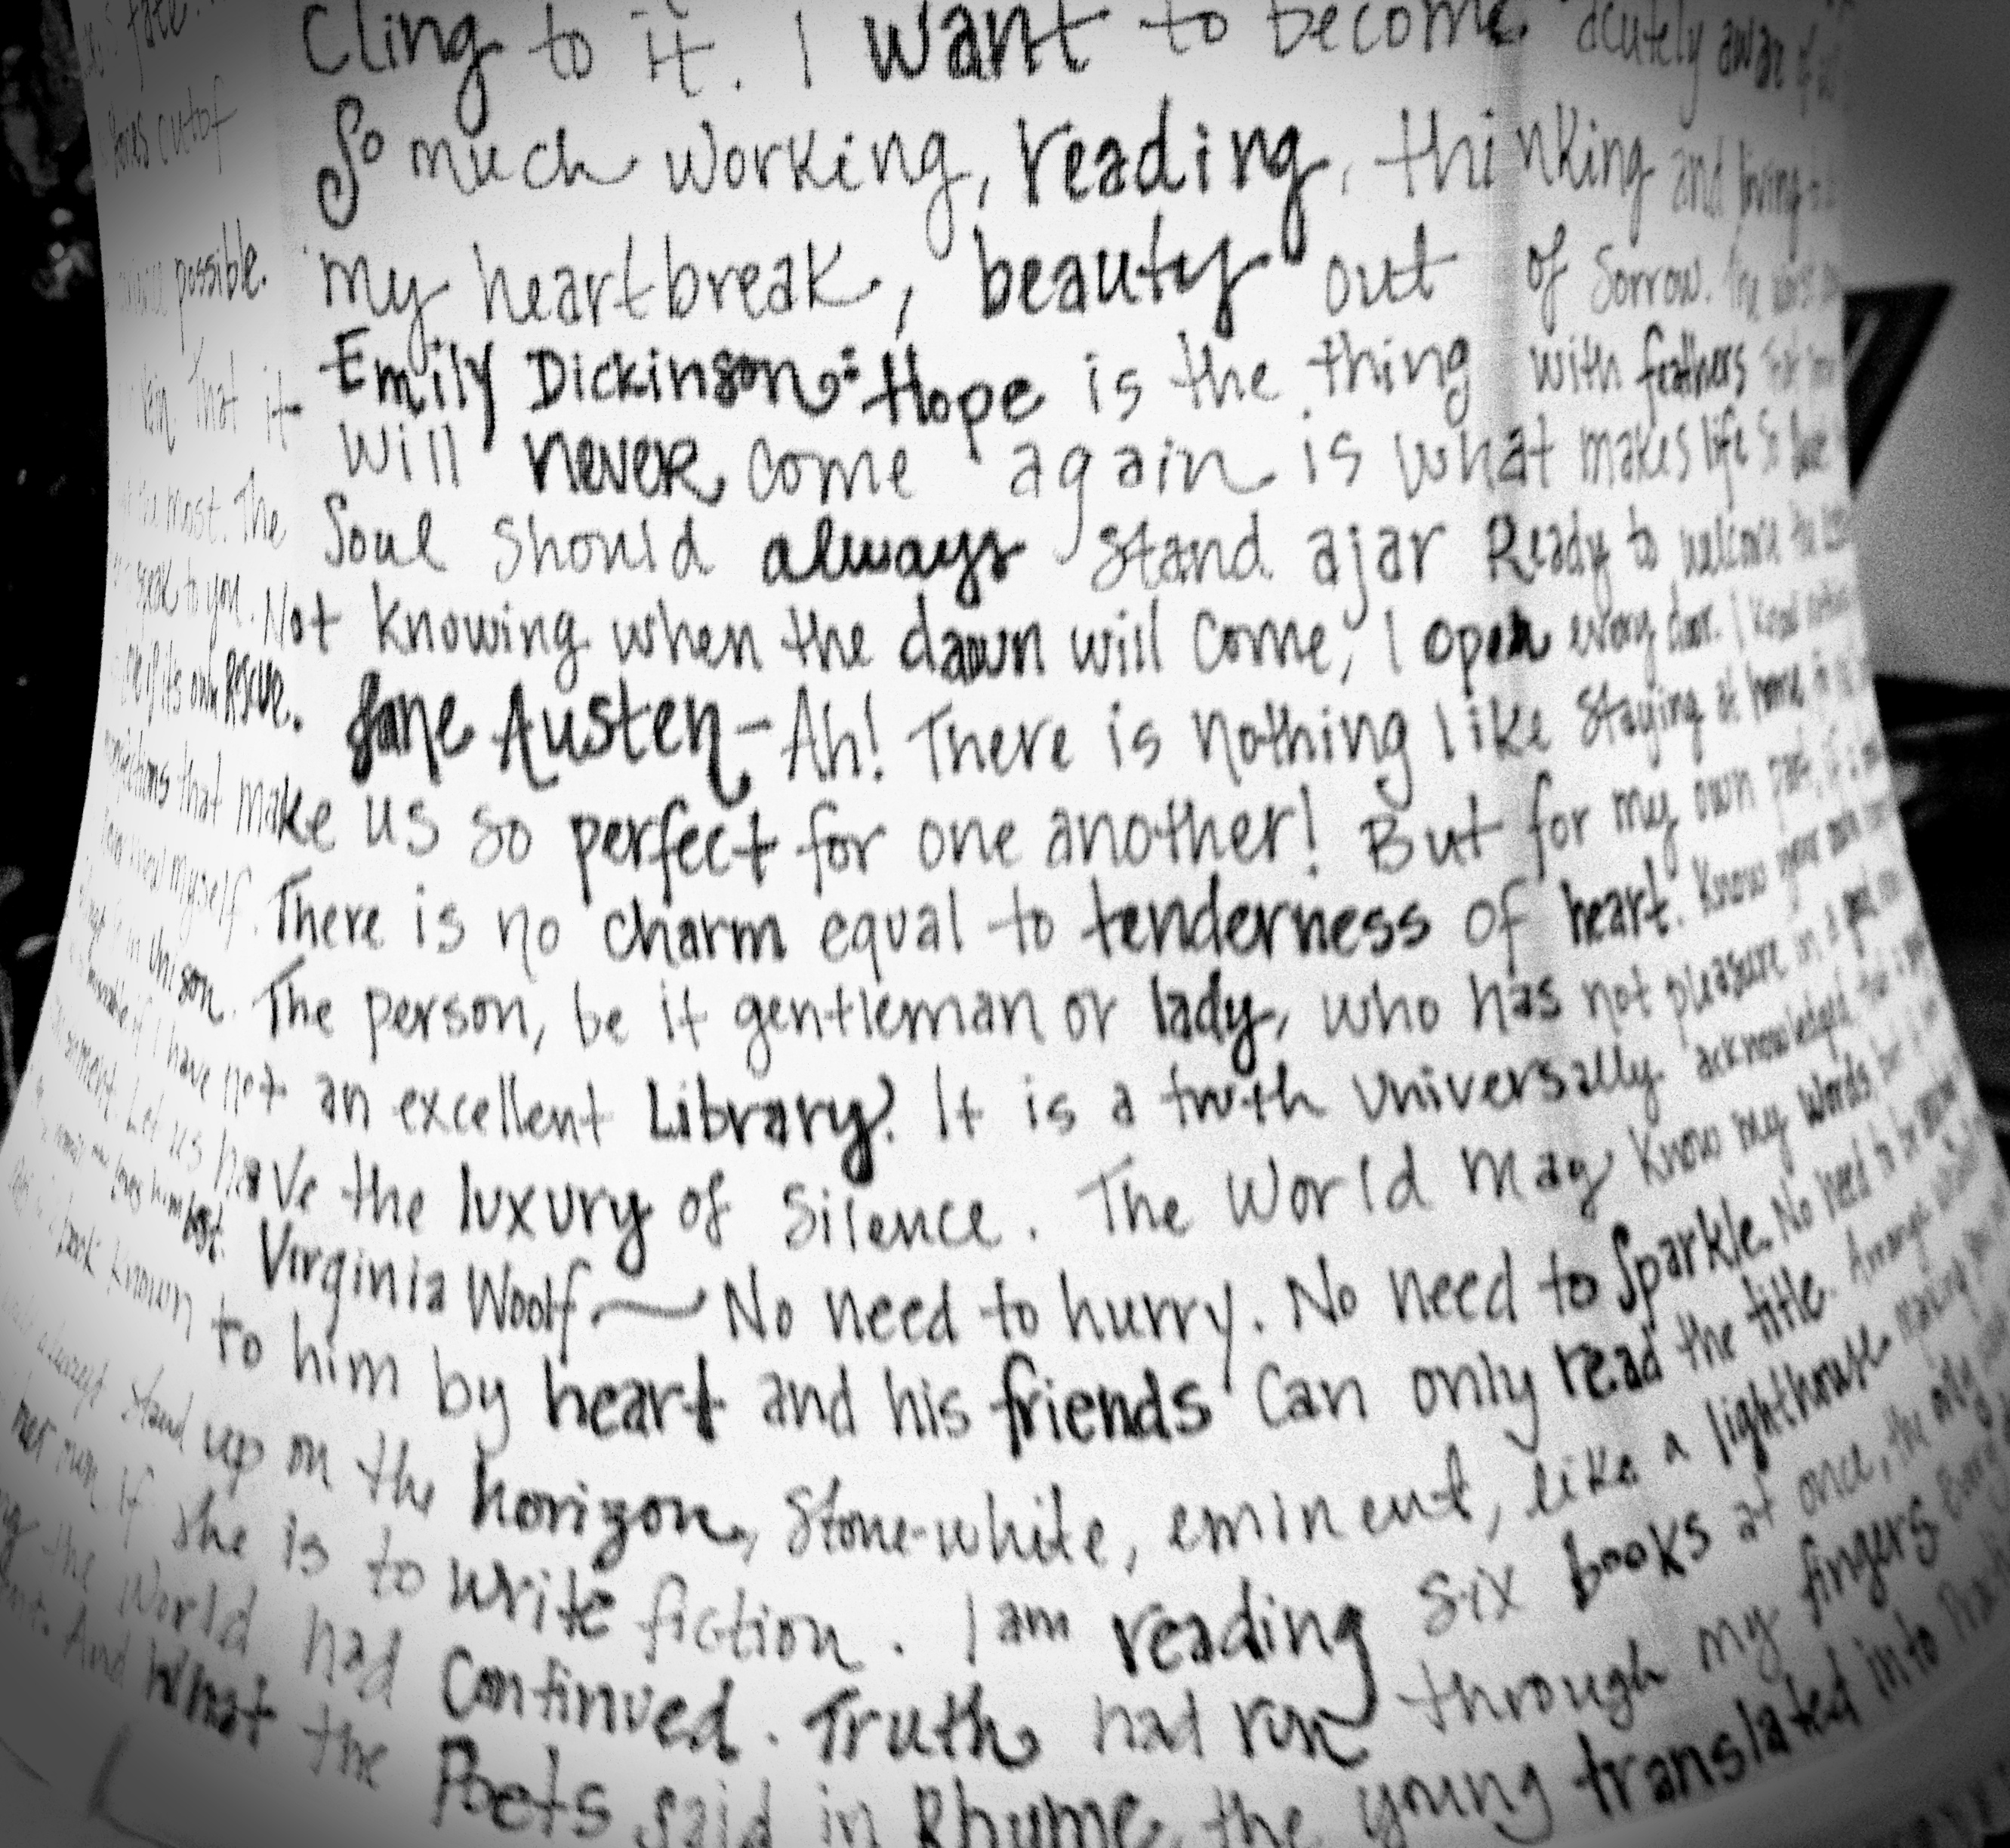 fate.
Cling to it. I want to become acutely aware of
cut of
So much working, reading, thinking and living
possible. my heartbreak, beauty out of Sorrow. The worst
That it Emily Dickinson: Hope is the thing with feathers that
Will never come again is what makes life so
most. The Soul should always stand ajar Ready to welcome the
speak to you. Not knowing when the dawn will come, I open every door. I
its own Rescue. Jane Austen - Ah! There is nothing like Staying at home,
that make us so perfect for one another! But for my own part, if
myself. There is no charm equal to tenderness of heart. Know your own
in unison. The person, be it gentleman or lady, who has not pleasure in a good
if I have not an excellent Library! It is a truth Universally acknowledged that
Let us have the luxury of Silence. The World may know my words, but
loves him best. Virginia Woolf ~ No need to hurry. No need to Sparkle. No need to be
book known to him by heart and his friends can only read the title. Arrange
stand up on the horizon, Stone-white, eminent, like a lighthouse
if she is to write fiction. I am reading six books at once, the only
the World had Continued. Truth had run through my fingers
And What the Poets said in Rhyme, the young translated into